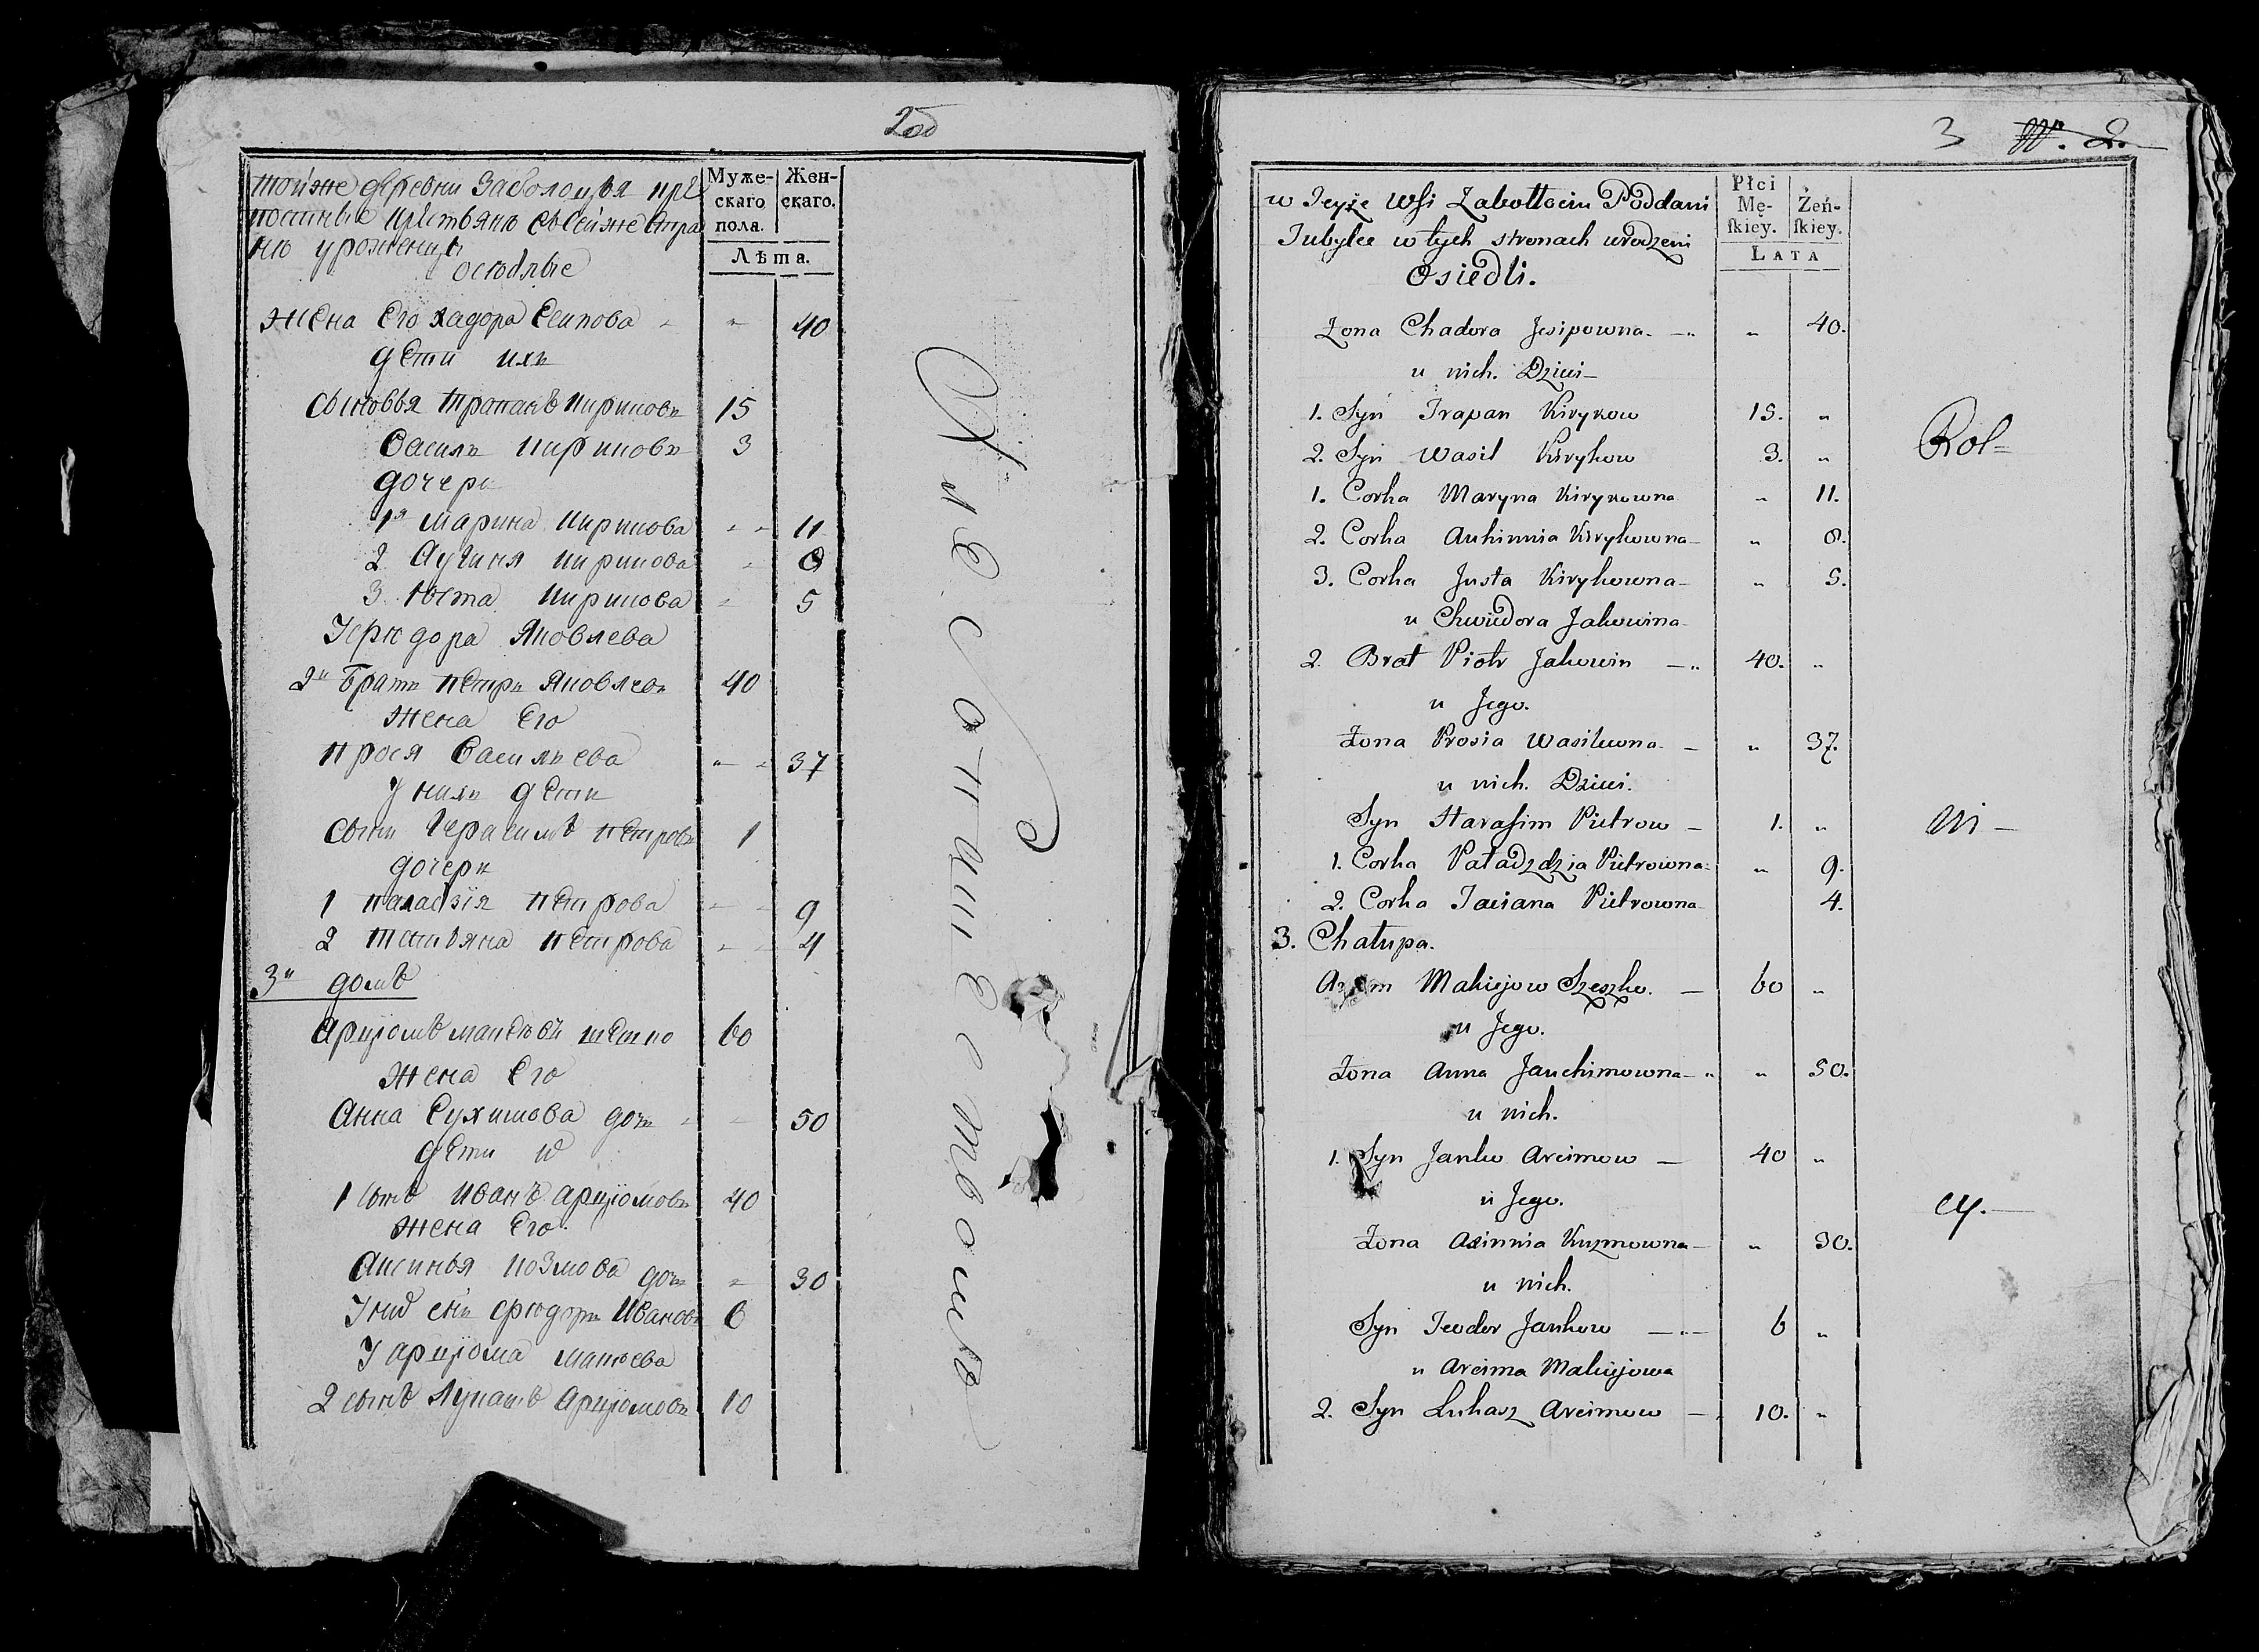 2об
тойже деревни Заболоцья кре
постные крестьяне
уроженцы
оседлые
Муже-
скаго
пола.
Жен-
скаго.
Лѣта.
жена Его Хадора Есипова " 40
дети ихъ
сыновья Трапанъ Кириковъ 15
Василь Кириковъ 3
дочери
1я Марина Кирикова " 11
2 Аугиня Кирикова " 8
3 Юста Кирикова " 5
У Хрюдора Яковлева
2й братъ Петръ Яковлевъ 40
жена Его
Прося Васильева " 37
У нихъ дети
сынъ Герасимъ Петровъ 1
дочери
1 Паладзія Петрова " 9
2 Тетьяна Петрова " 4
3й домъ
Арцiомъ Макѣевъ Шешко 60
жена Его
Анна Еухимова дочь " 50
дети
1 сынъ Иванъ Арцiомовъ 40
жена Его
Аксинья Козмова дочь " 30
У нихъ сынъ Фюдоръ Ивановъ 6
У Арцiома Макѣева
2 сынъ Лукашъ Арцiомовъ 10
3 W. 2.
w Teyże Wsi Zabołłociu Poddani
Tubylce w tych stronach urodzeni
Osiedli.
Płci
Mę-
skiey.
Żeń-
skiey.
LATA
Żona Chadora Jesipowna — " " 40.
u nich. Dzieci —
1. Syn Trapan Kirykow 15. "
2. Syn Wasil Kirykow 3. "
Rol=
1. Corka Maryna Kirykowna " 11.
2. Corka Auhinnia Kirykowna — " 8.
3. Corka Justa Kirykowna — " 5.
u Chwiedora Jakowina —
2. Brat Piotr Jakowin — " 40. "
u Jego.
Żona Prosia Wasilewna — " 37.
u nich. Dzieci.
Syn Harasim Pietrow — 1. "
ni —
1. Corka Paładzdzia Pietrowna — " 9.
2. Corka Taciana Pietrowna 4.
3. Chałupa.
Makiejow Szeszko. — 60 "
u Jego.
Żona Anna Jauchimowna — " " 50.
u nich.
1. Syn Janko Arcimow — 40 "
u Jego.
cy. —
Żona Axinnia Kuzmowna — " 30.
u nich.
Syn Teodor Jankow — " — 6 "
u Arcima Makiejowa
2. Syn Łukasz Arcimow — 10. "